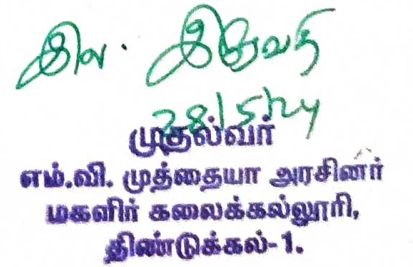 28/5/24
முதல்வர்
எம்.வி. முத்தையா அரசினர்
மகளிர் கலைக்கல்லூரி,
திண்டுக்கல்-1.